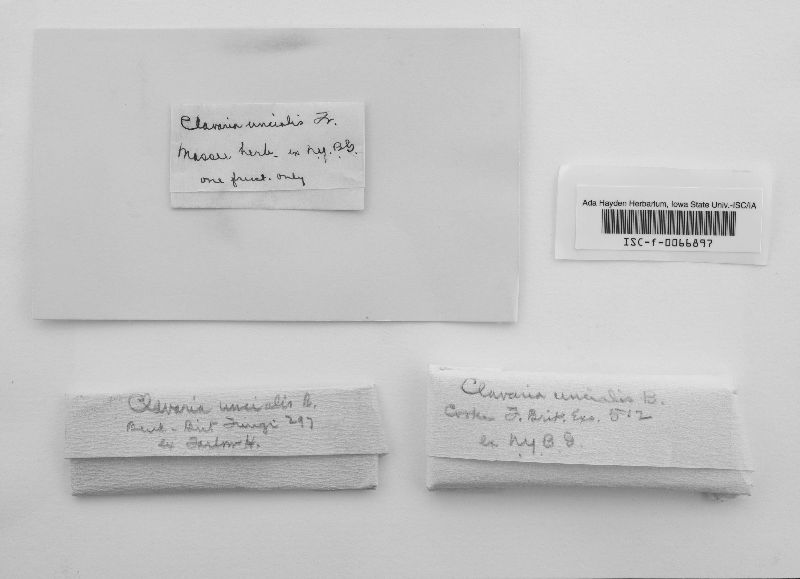 Clavaria uncialis Fr.
Massee herb. ex N.Y.B.G.
one fruct. only
Ada Hayden Herbarium, Iowa State Univ.-ISC/IA
ISC-f-0066897
Clavaria uncialis B.
Berk. Brit Fungi 297
ex Farlow H.
Clavaria uncialis B.
Cooke F. Brit. Exs. 512
ex N.Y.B.G.